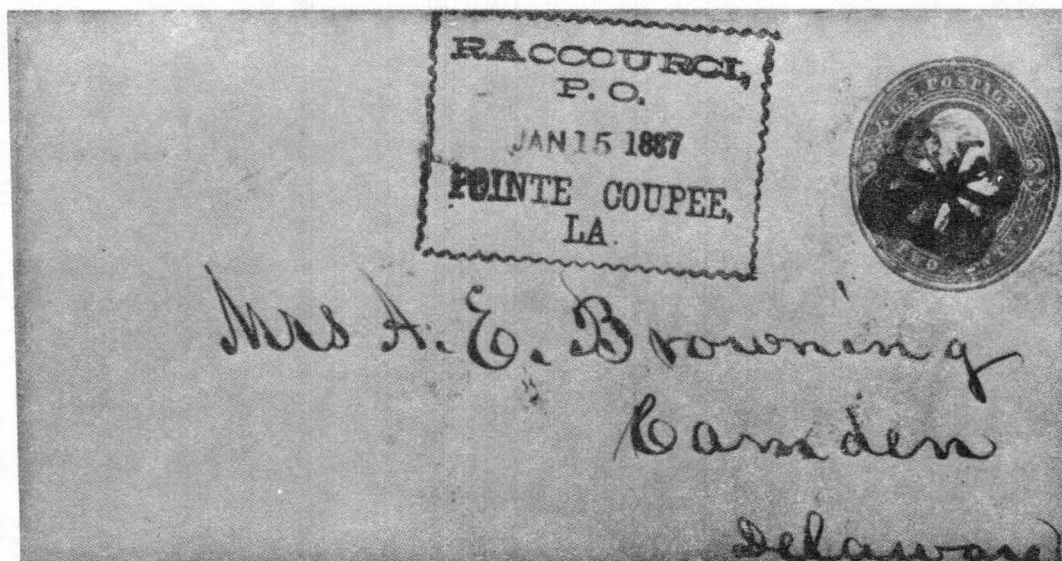 RACCOURCI,
P. O.
JAN 15 1887
POINTE COUPEE,
LA.
U.S. POSTAGE
Mrs A. E. Browning
Camden
Delaware